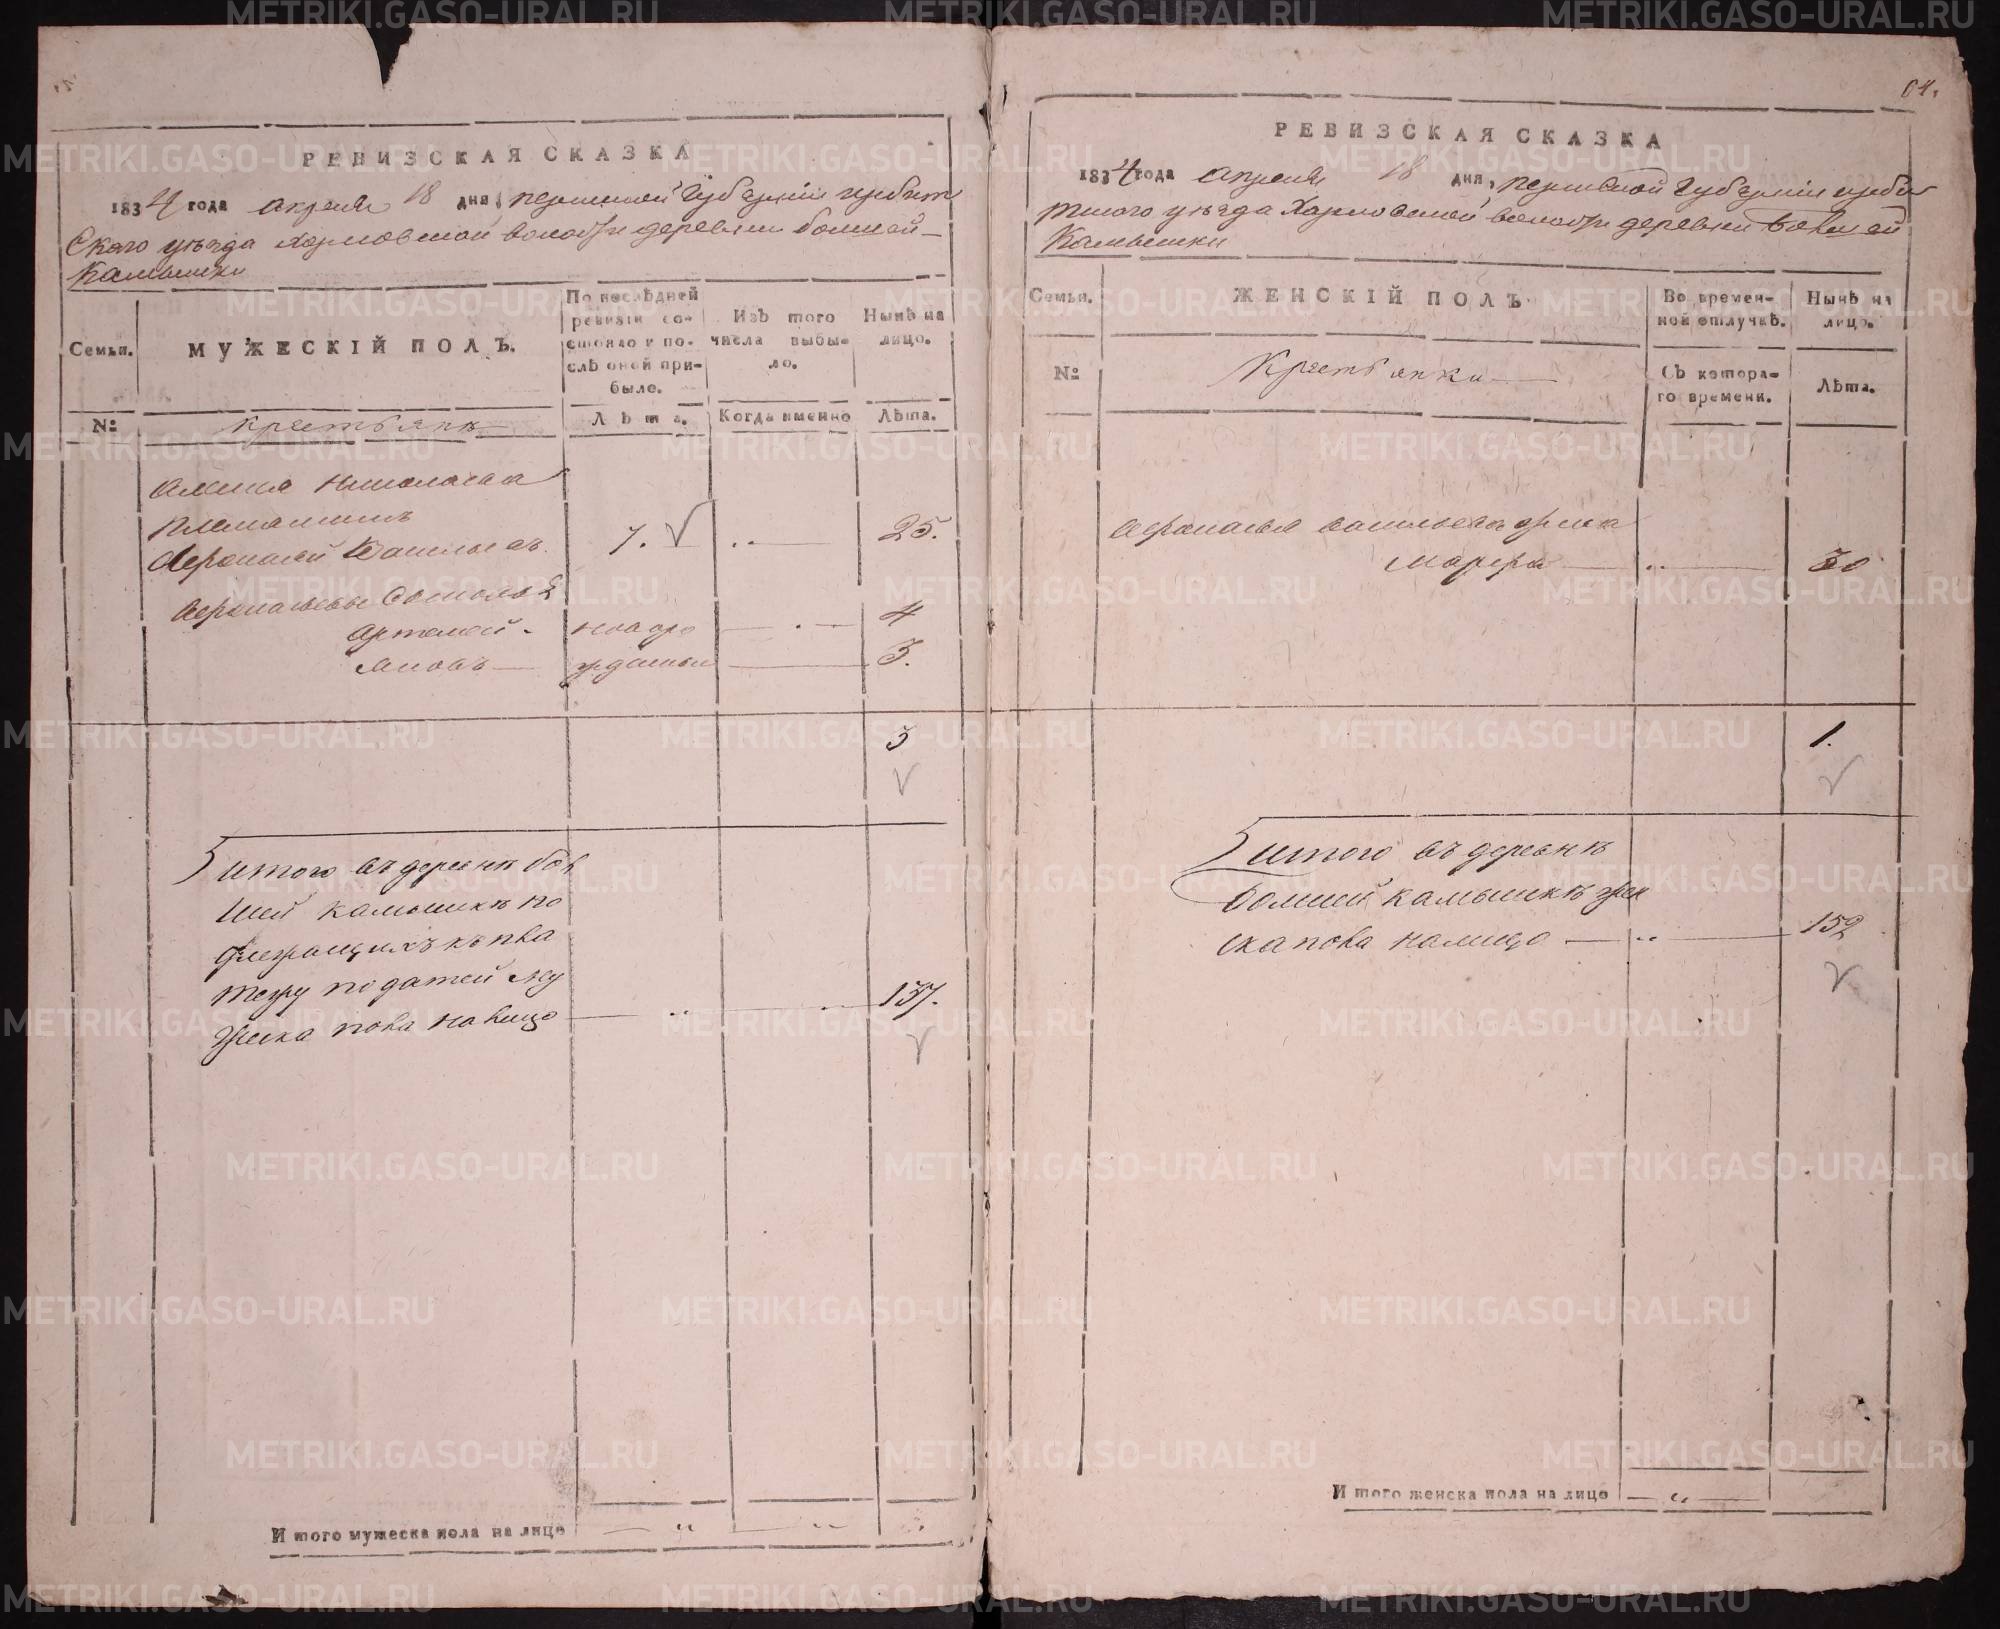 64.
РЕВИЗСКАЯ СКАЗКА
1834 года апреля 18 дня, пермской Губернии ирбит
Скаго уезда Харловской волости деревни болшой
Камышки
Семьи.
МУЖЕСКІЙ ПОЛЪ.
По послѣдней ревизіи состояло и послѣ оной прибыло.
Изъ того числа выбыло.
Нынѣ на лицо.
№
Крестьяне
Лѣта.
Когда именно
Лѣта.
племянникъ
Васильевъ 7. 25.
Артемей новоро 4
рожденны 3.
3
итого въ деревнѣ бол
шей камышкѣ по
длежащихъ къ пла
тежу податей му
жеска пола налицо 157.
И того мужеска пола на лице
РЕВИЗСКАЯ СКАЗКА
1834 года апреля 18 дня, пермской Губернии ирби
тского уезда Харловской волости деревни болшой
Камышки
Семьи.
ЖЕНСКІЙ ПОЛЪ
Во временной отлучкѣ.
Нынѣ на лицо.
№
Крестьянки
Съ котораго времени.
Лѣта.
васильева жена
Марфа 30
1.
итого въ деревнѣ
болшей камышкѣ жен
ска пола налицо 152
И того женска пола на лицо
METRIKI.GASO-URAL.RU